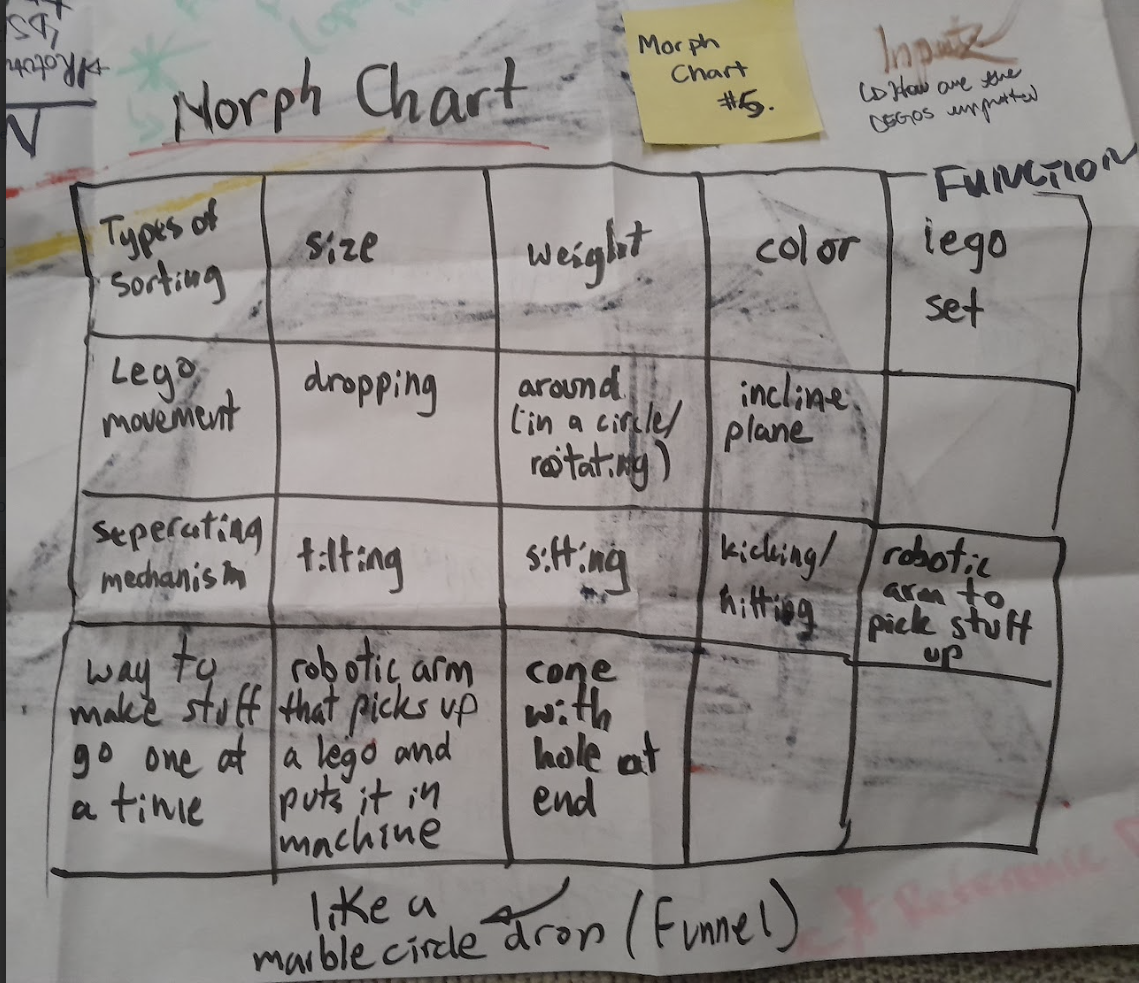 Morph Chart
Morph
Chart
#5.
Inputs
How are the
LEGOS inputted
FUNCTION
Types of
sorting
size
weight
color
lego
set
Lego
movement
dropping
around
(in a circle/
rotating)
incline
plane
seperating
mechanism
tilting
sifting
kicking/
hitting
robotic
arm to
pick stuff
up
way to
make stuff
go one at
a time
robotic arm
that picks up
a lego and
puts it in
machine
cone
with
hole at
end
like a
marble circle drop (Funnel)
Reference